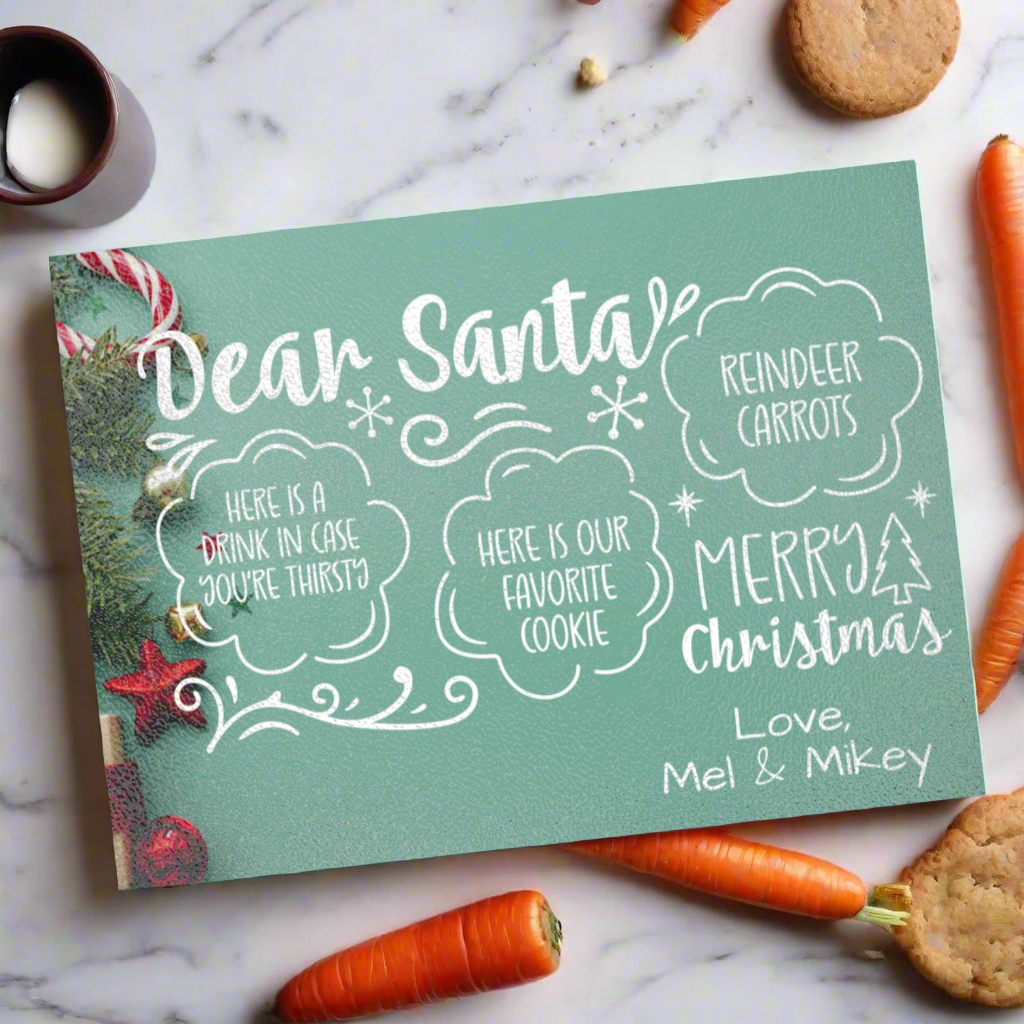 Dear Santa
REINDEER
CARROTS
HERE IS A
DRINK IN CASE
YOU'RE THIRSTY
HERE IS OUR
FAVORITE
COOKIE
MERRY
Christmas
Love,
Mel & Mikey